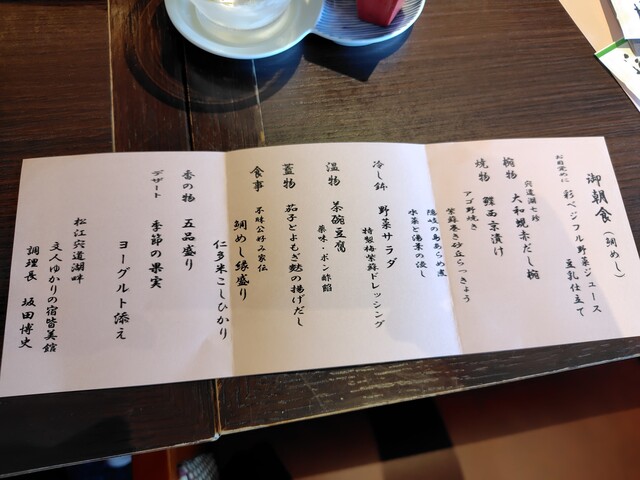 御朝食(鯛めし)
お目覚めに 彩ベジフル野菜ジュース
豆乳仕立て
椀物 宍道湖七珍
大和蜆赤だし椀
焼物 鰆西京漬け
アゴ野焼き
紫蘇巻き砂丘らっきょう
隠岐の島あらめ煮
水菜と湯葉の浸し
冷し鉢 野菜サラダ
特製梅紫蘇ドレッシング
温物 茶碗豆腐
薬味・ポン酢餡
蓋物 茄子とよもぎ麩の揚げだし
食事 不昧公好み家伝
鯛めし縁盛り
仁多米こしひかり
香の物 五品盛り
デザート 季節の果実
ヨーグルト添え
松江宍道湖畔
文人ゆかりの宿皆美館
調理長 坂田博史